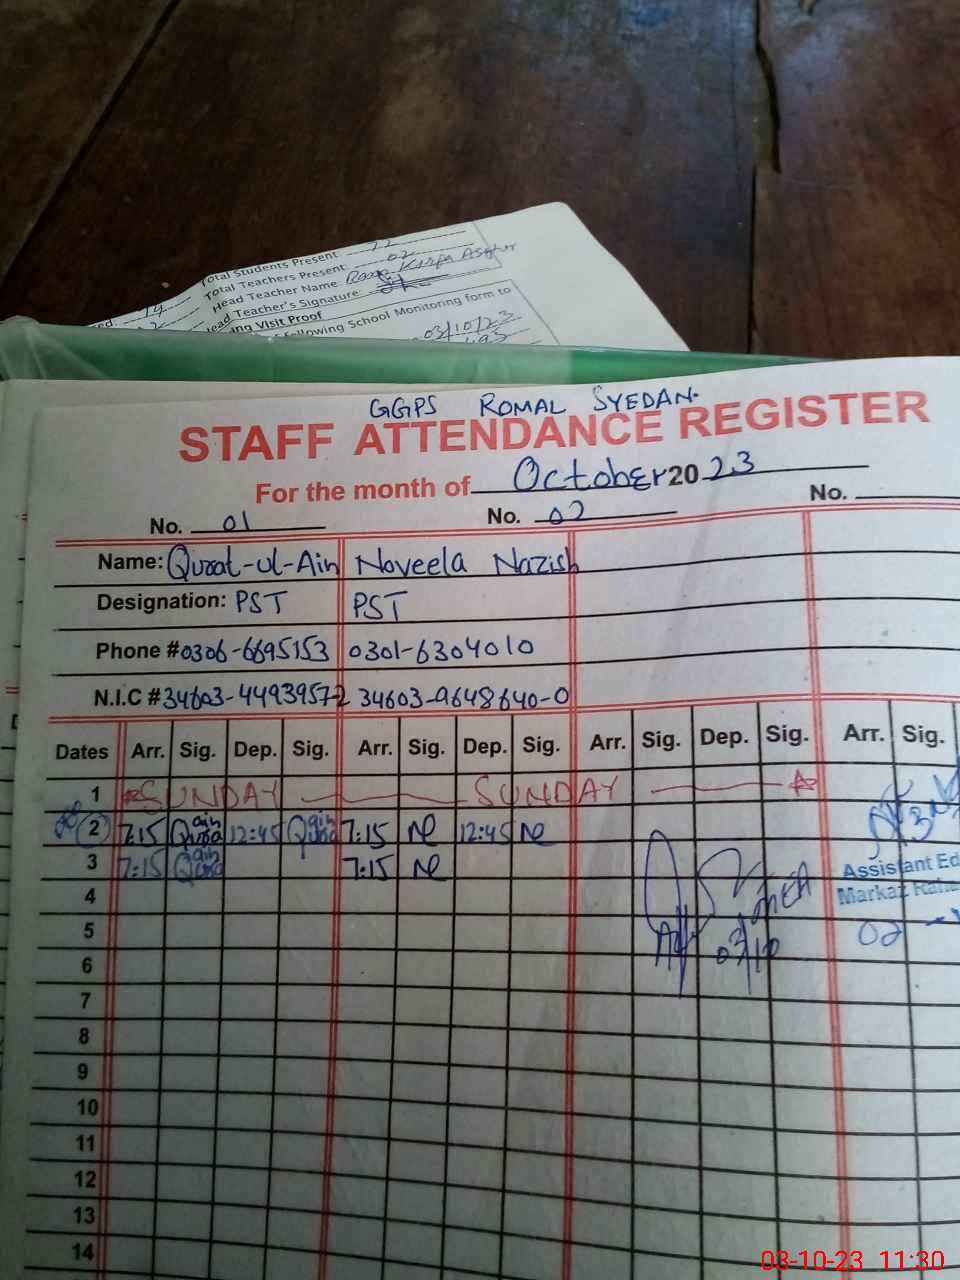 Total Students Present:
Total Teachers Present: 02
Head Teacher Name:
Head Teacher's Signature:
ing Visit Proof
following School Monitoring form to
03/10/23
GGPS ROMAL SYEDAN.
STAFF ATTENDANCE REGISTER
For the month of October 2023
No. 01 No. 02 No.
Name: Qurat-ul-Ain Noveela Nazish
Designation: PST PST
Phone # 0306-6695153 0301-6304010
N.I.C # 34603-4493957-2 34603-9648640-0
Dates Arr. Sig. Dep. Sig. Arr. Sig. Dep. Sig. Arr. Sig. Dep. Sig. Arr. Sig.
1 SUNDAY SUNDAY
2 7:15 Qurat ain 12:45 Qurat ain 7:15 N 12:45 N
3 7:15 Qurat ain 7:15 N
Assistant Ed
4
Markaz
5 02
03/10
6
7
8
9
10
11
12
13
14
03-10-23 11:30